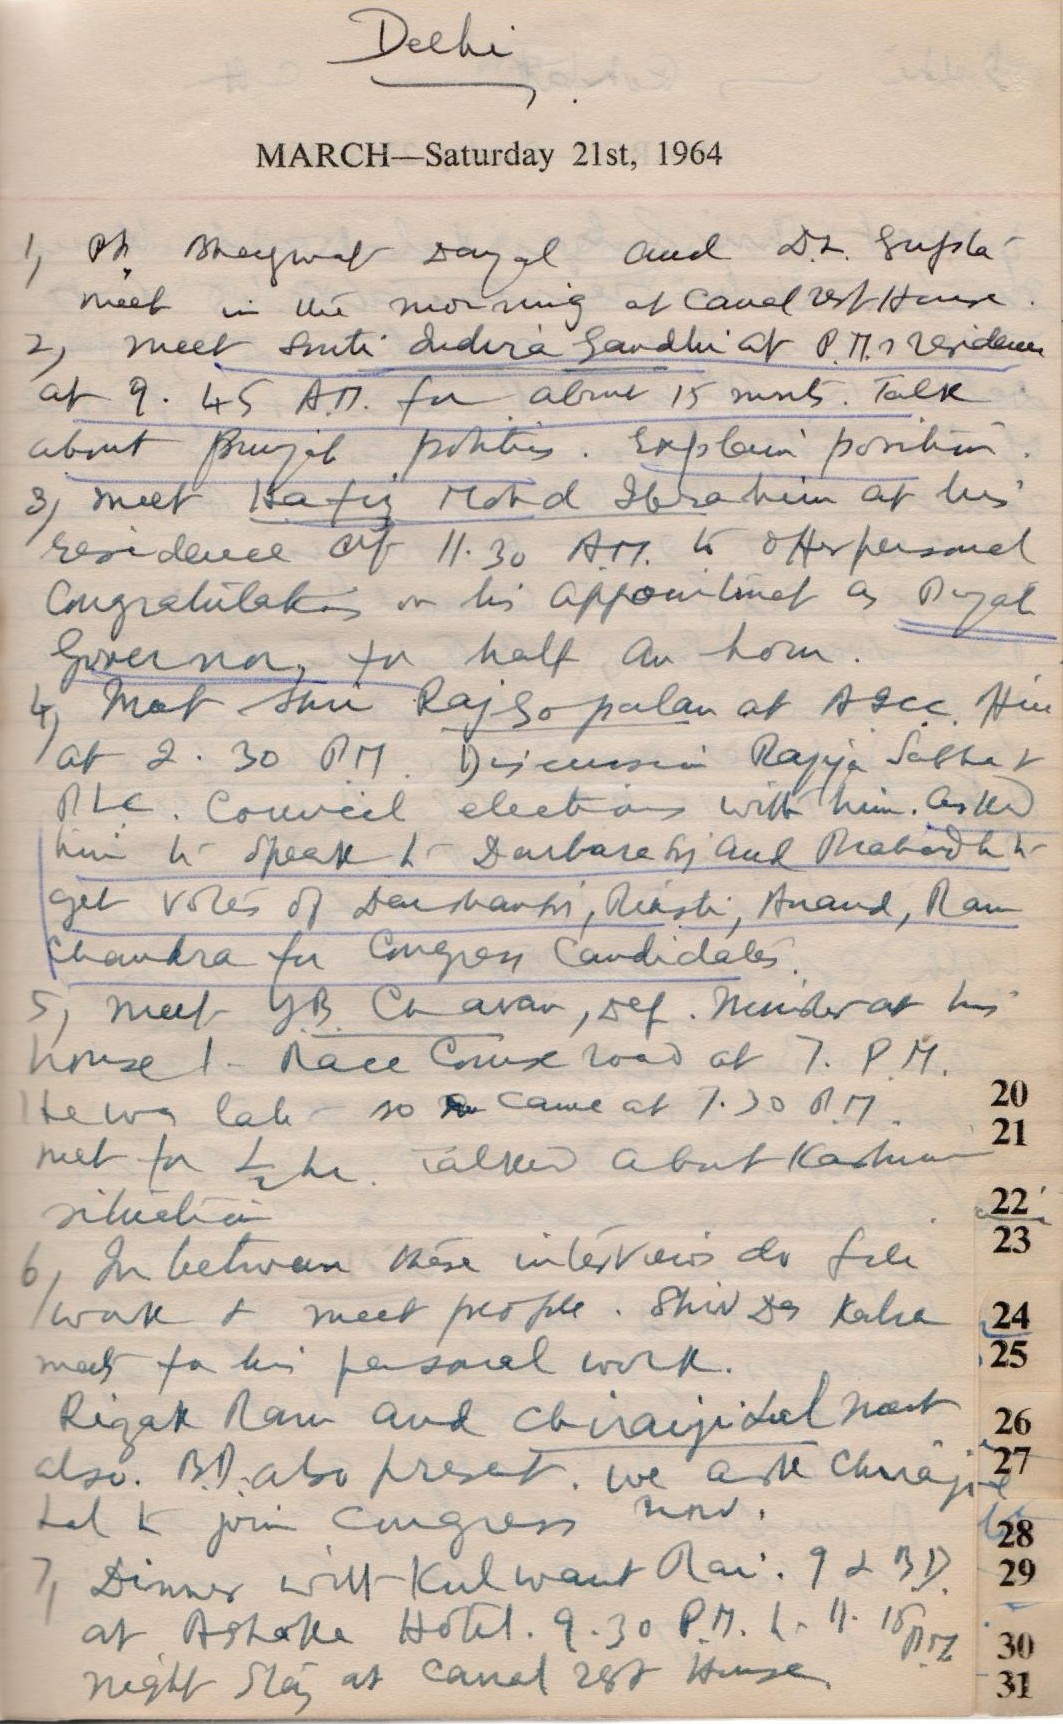 Delhi
MARCH—Saturday 21st, 1964
1, Pt. Bhagwat Dayal and D.L. Gupta
meet in the morning at Canal rest House.
2, meet Smti Indira Gandhi at P.M.s residence
at 9.45 A.M. for about 15 mnts. Talk
about Punjab politics. Explain position.
3, meet Hafiz Mohd Ibrahim at his
residence at 11.30 A.M. to offer personal
Congratulations on his appointment as Punjab
Governor, for half an hour.
4, Met Shri Raj Gopalan at AICC.
at 2.30 P.M. Discussion Rajya Sabha &
Council elections with him. asked
him to speak to Darbara Sj and Prabodh to
get votes of Anand, Ram
Chandra for Congress Candidates.
5, meet Y.B. Chavan, Def. Minister at his
house 1 - Race Course road at 7. P.M.
He was late - so came at 7.30 P.M.
met for ½ hr. Talked about Kashmir
situation
6, In between these interviews do file
work & meet people. Shiv Das Kalra
meets for his personal work.
Rizak Ram and Chiranji Lal meet
also. B.D. also present. we ask Chiranji
Lal to join Congress now.
7, Dinner with Kulwant Rai. I & B.D.
at Ashoka Hotel. 9.30 P.M. to 11.15 P.M.
night stay at Canal rest House
20
21
22
23
24
25
26
27
28
29
30
31